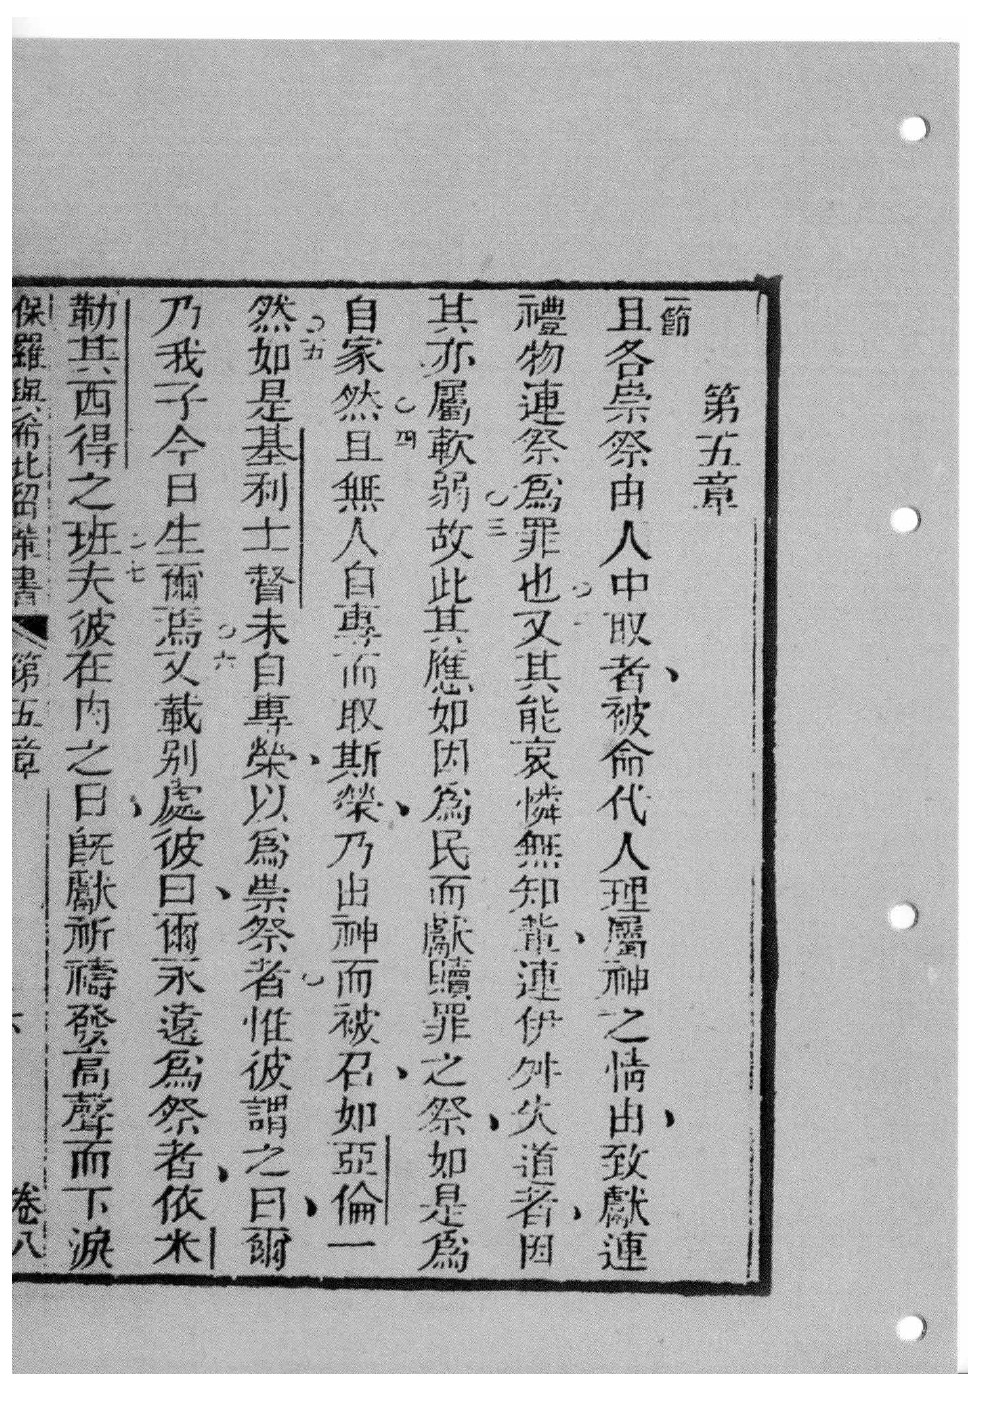 第五章
一節且各祟祭由人中取者、被命代人理屬神之情由、致獻連
禮物連祭爲罪也○二又其能哀憐無知輩、連伊舛失道者、因
其亦屬軟弱○三故此其應如因爲民而獻贖罪之祭、如是爲
自家然○四且無人自專而取斯榮、乃出神而被召、如亞倫一
然○五如是基利士督未自專榮、以爲祟祭者○惟彼謂之曰、爾
乃我子今日生爾焉○六又載別處彼曰、爾永遠爲祭者、依米
勒其西得之班○七夫彼在肉之日、旣獻祈禱發高聲而下淚
保羅與希北留書 第五章 卷八